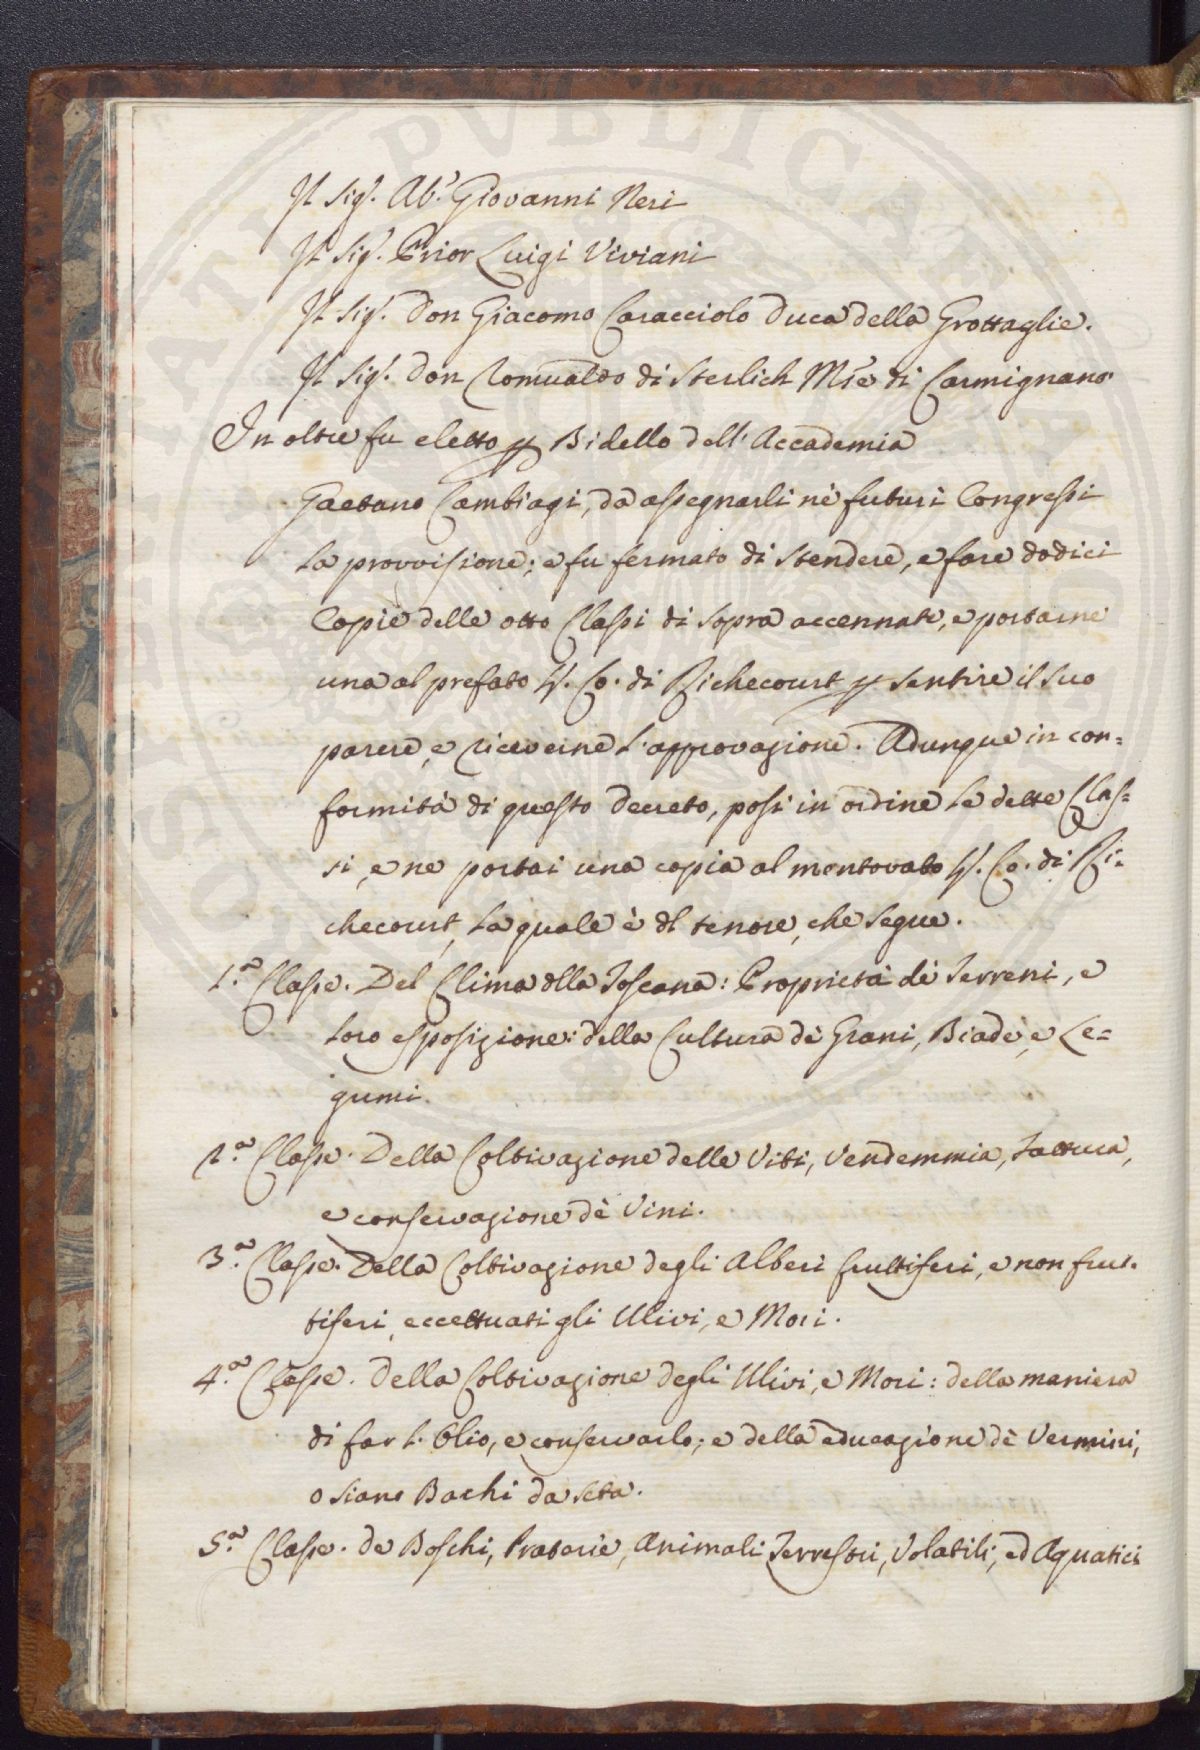 Il Sig.r Ab.e Giovanni Neri
Il Sig.r Prior Luigi Viviani
Il Sig.r Don Giacomo Caracciolo Duca della Grottaglie.
Il Sig.r Don Romualdo di Sterlich Mse di Carmignano
In oltre fu eletto p Bidello dell'Accademia
Gaetano Cambiagi, da assegnarli nè futuri Congressi
la provvisione; e fu fermato di stendere, e fare dodici
Copie delle otto Classi di sopra accennate, e portarne
una al prefato Co. di Richecourt p sentire il suo
parere, e riceverne l'approvazione. Adunque in con=
formità di questo decreto, posi in ordine le dette Clas=
si, e ne portai una copia al mentovato Co. di Ri=
checourt, la quale è dl tenore, che segue.
1.a Classe. Del Clima dlla Toscana: Proprietà dè Terreni, e
loro esposizione: della Cultura dè Grani, Biade, e Le=
gumi.
2.a Classe. Della Coltivazione delle Viti, Vendemmia, Fattura,
e conservazione dè Vini.
3.a Classe. Della Coltivazione degli Alberi fruttiferi, e non frut=
tiferi, eccettuati gli Ulivi, e Mori.
4.a Classe. Della Coltivazione degli Ulivi, e Mori: della maniera
di far l'Olio, e conservarlo; e della educazione dè Vermini,
o siano Bachi da seta.
5.a Classe. de Boschi, Praterie, Animali Terrestri, Volatili, ed Aquatici